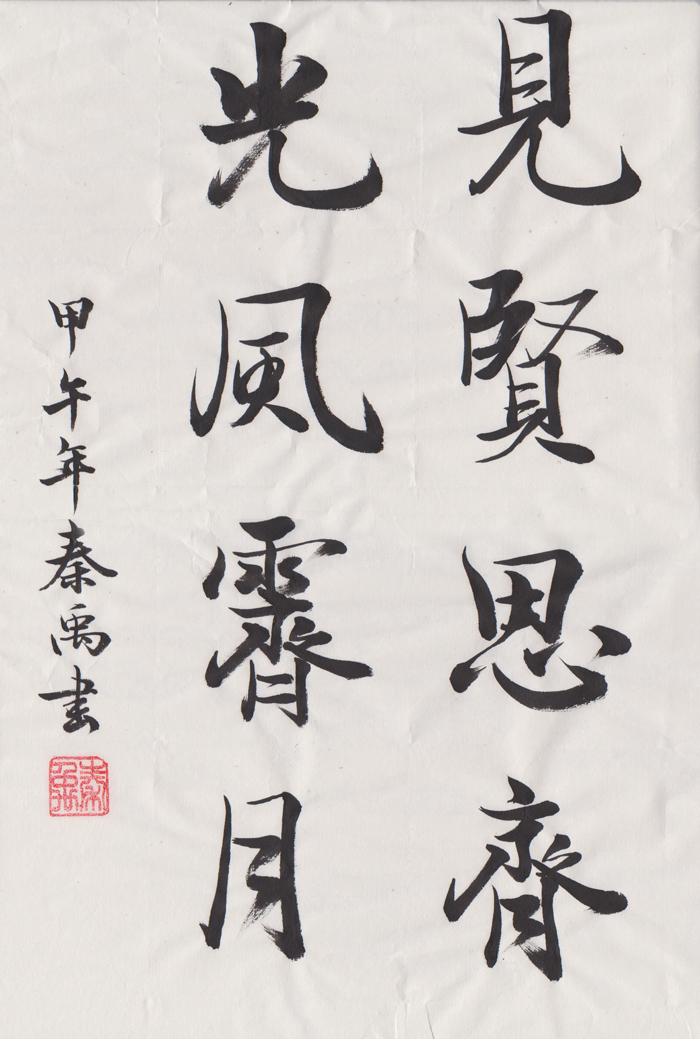 見賢恩齊
光風霽月
甲午年秦禹書
秦禹